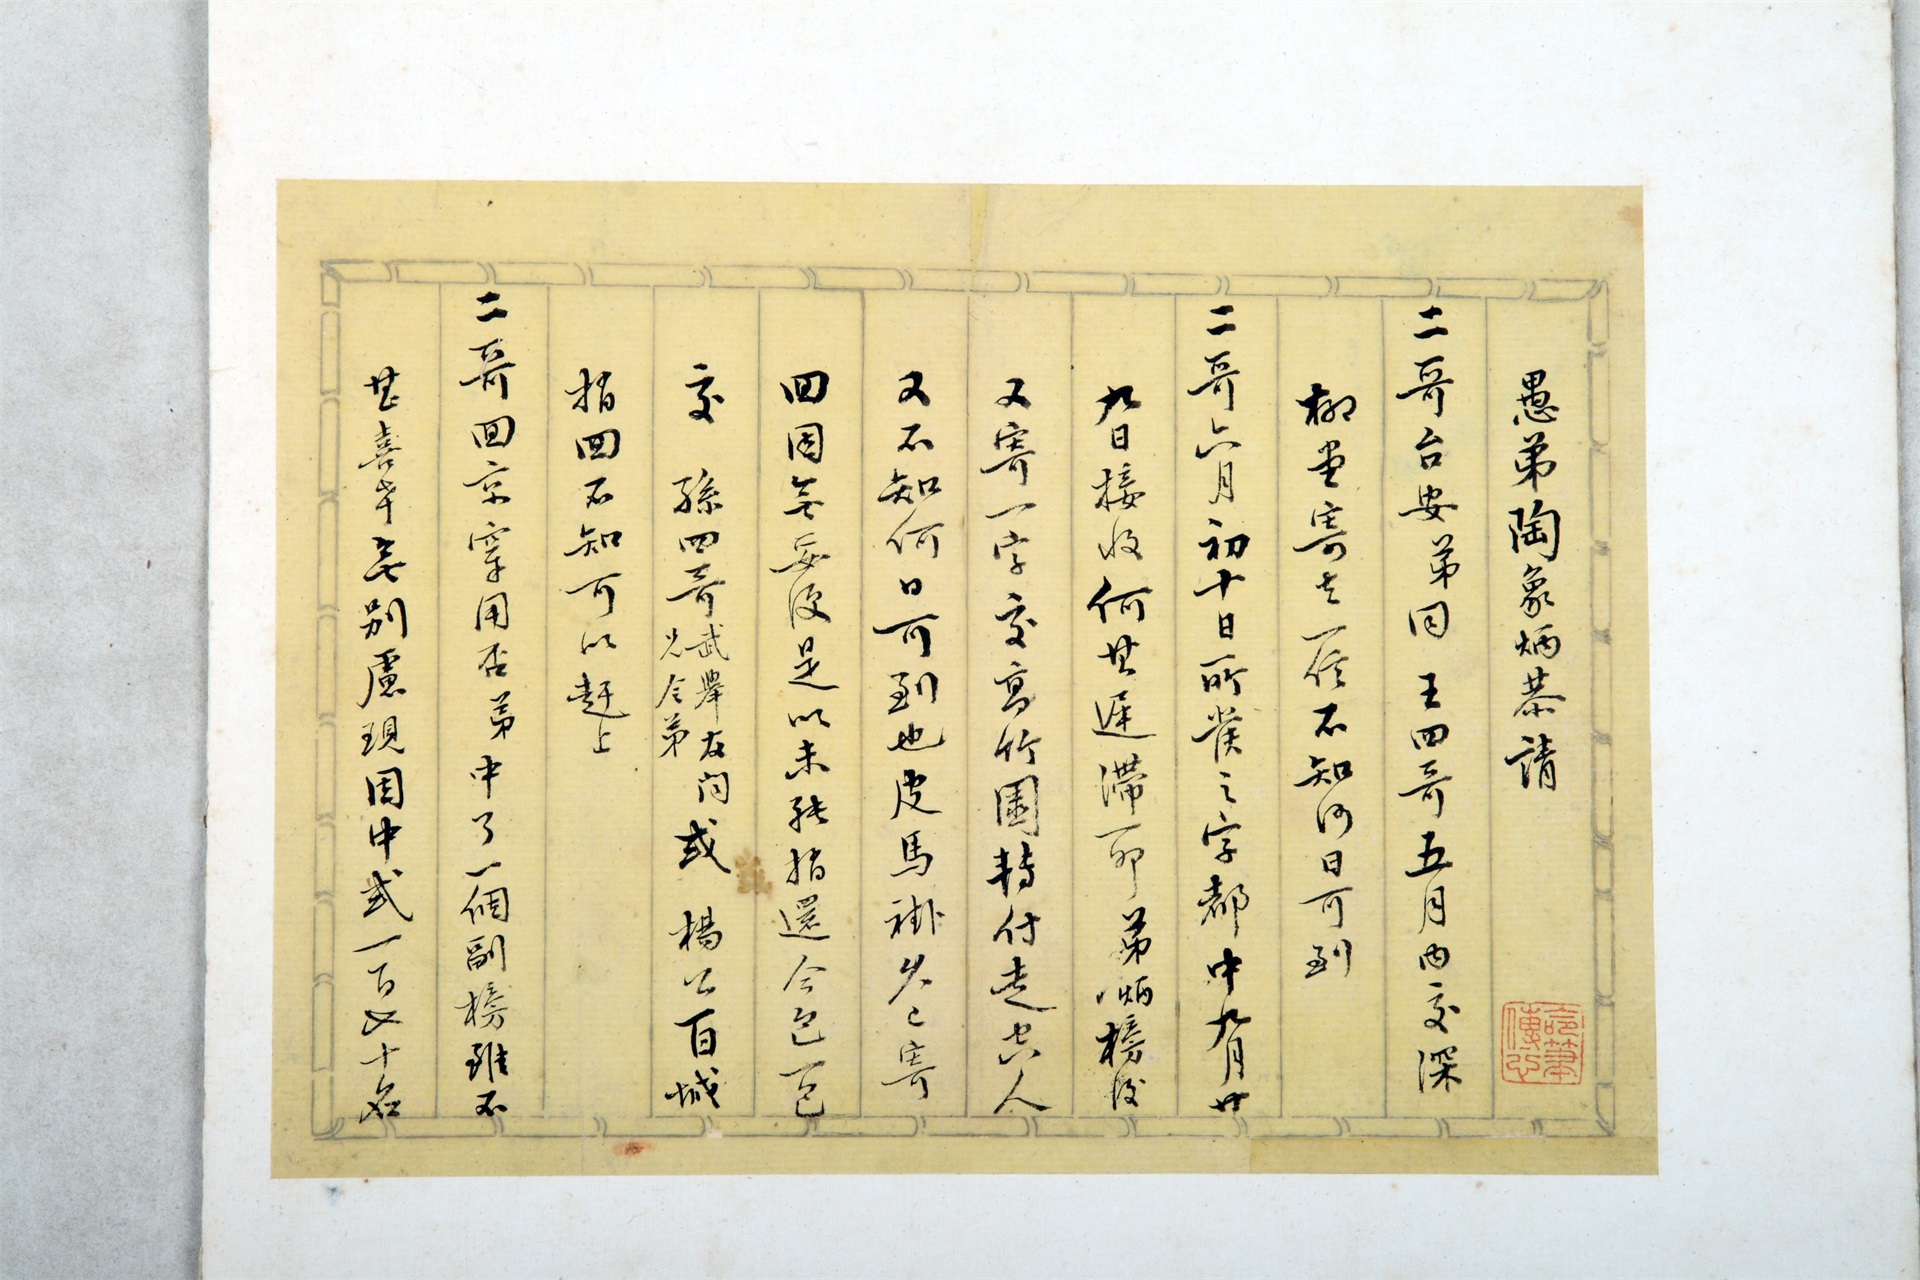 愚弟陶象炳恭請
二哥台安弟同王四哥五月內交深
柳堂寄去一信不知何日可到
二哥六月初十日所發之字都中九月廿
九日接收何其遲滯耶弟炳榜後
又寄一字交高竹園轉付走字人
又不知何日可到也皮馬褂久已寄
回因無妥便是以未能捎還今包一包
交孫四哥武舉在閩或楊公百城
兄令弟
捎回不知可以趕上
二哥回京穿用否弟中了一個副榜雖不
甚喜幸無別慮現因中式一百七十名